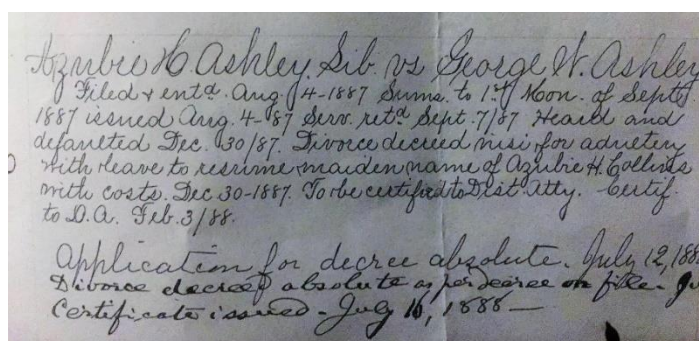 Azubie H. Ashley Lib. vs George W. Ashley
Filed & entd. Aug. 4-1887 Sums. to 1st Mon. of Sept,
1887 issued Aug. 4-87 Serv. retd Sept. 7/87 Heard and
defaulted Dec. 30/87. Divorce decreed nisi for adultery
with leave to resume maiden name of Azubie H. Collins
with costs. Dec 30-1887. To be certified to Dist. Atty. Certif.
to D.A. Feb. 3/88.
Application for decree absolute. July 12, 188
Divorce decreed absolute as per decree on file.
Certificate issued - July 16, 1888 —